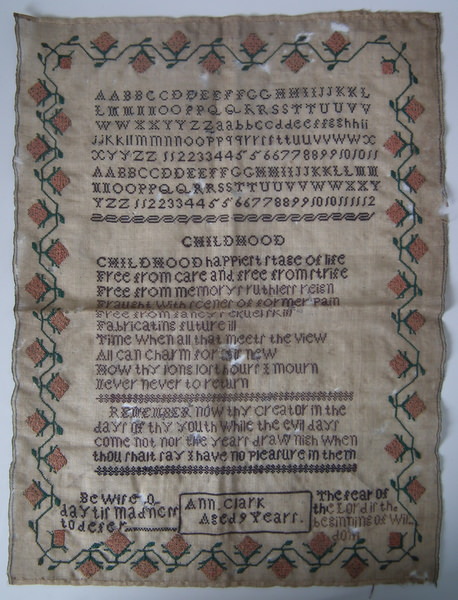 AABBCCDDEEFFGGHHIIJJKKL
LMMNNOOPPQQRRSSTTUUVV
WWXXYYZZaabbccddeeffgghhii
jjkkllmmnnooppqqrrssttuuvvwwx
xyyzz 112233445566778899101011
AABBCCDDEEFFGGHHIIJJKKLLMM
NNOOPPQQRRSSTTUUVVWWXXY
YZZ 1122334455667788991010111112
CHILDHOOD
CHILDHOOD happiest stage of life
Free from care and free from strife
Free from memorys ruthless reign
Fraught with scenes of former pain
Free from fancys cruel skill
Fabricating future ill
Time when all that meets the view
All can charm for tis new
How thy long lost hours I mourn
Never never to return
REMEMBER now thy creator in the
days of thy youth while the evil days
come not nor the years draw nish when
thou shalt say I have no pleasure in them
Be wise to
day tis madness
to defer
Ann Clark
Aged 9 Years.
The fear of
the Lord is the
beginning of Wis
dom